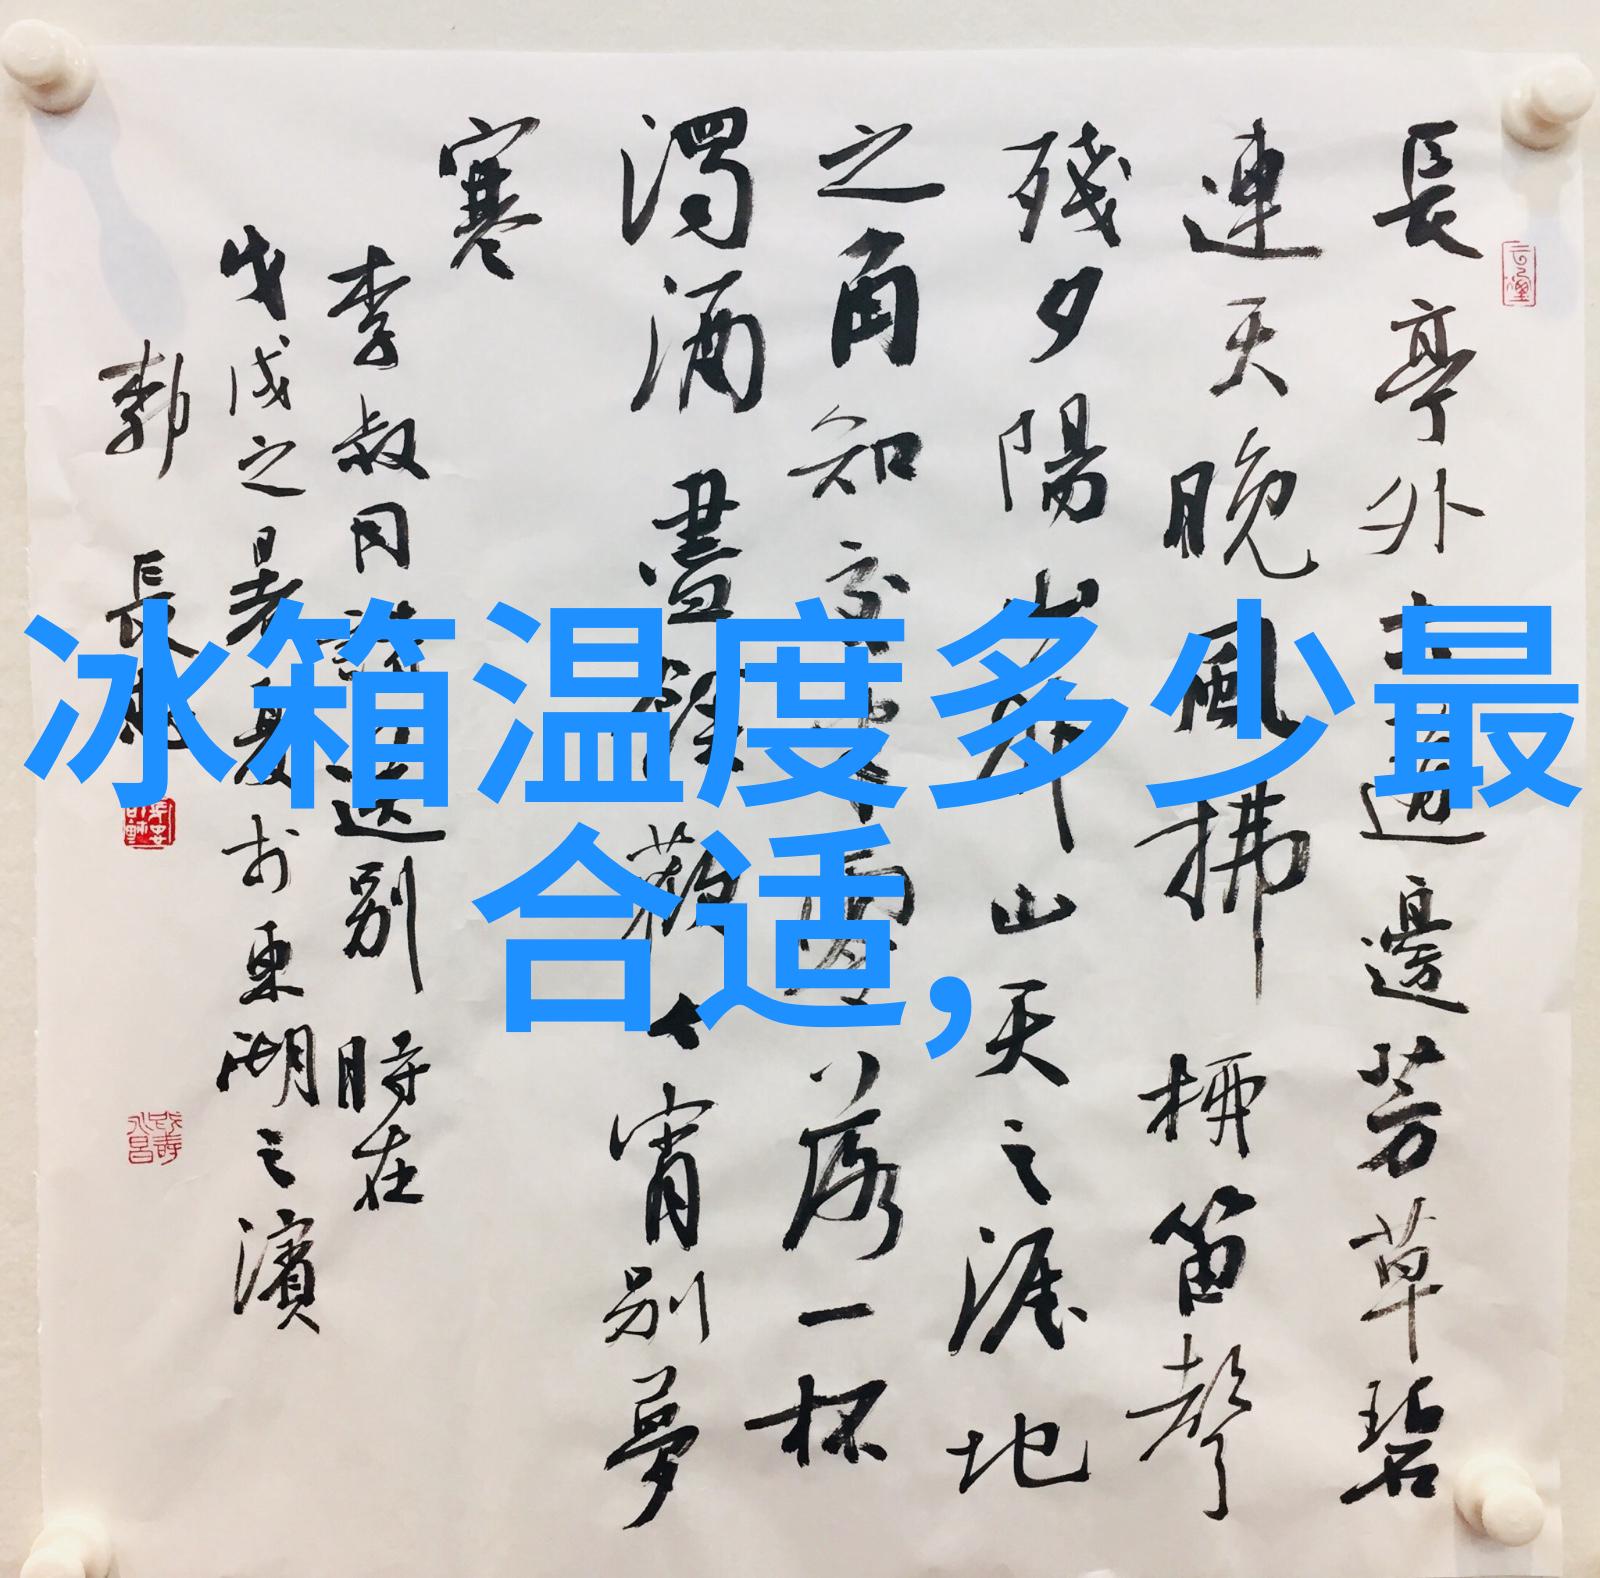 長亭外古道邊芳草碧
連天晚風拂柳笛聲
殘夕陽山外山天之涯地
之角知交半零落一杯
濁酒盡餘歡今宵別夢
寒
李叔同詩送別 時在
戊戌之暑夏於東湖之濱
郭 長
冰箱温度多少最
合适,